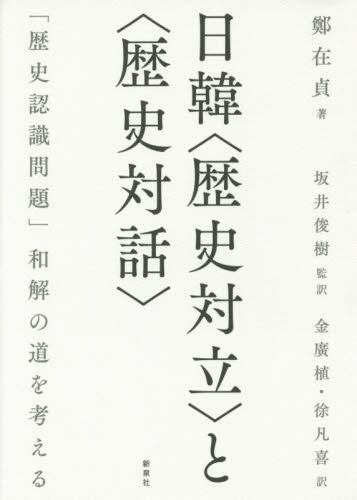 鄭在貞 著
坂井俊樹 監訳 金廣植・徐凡喜 訳
日韓〈歴史対立〉と
〈歴史対話〉
「歴史認識問題」和解の道を考える
新泉社